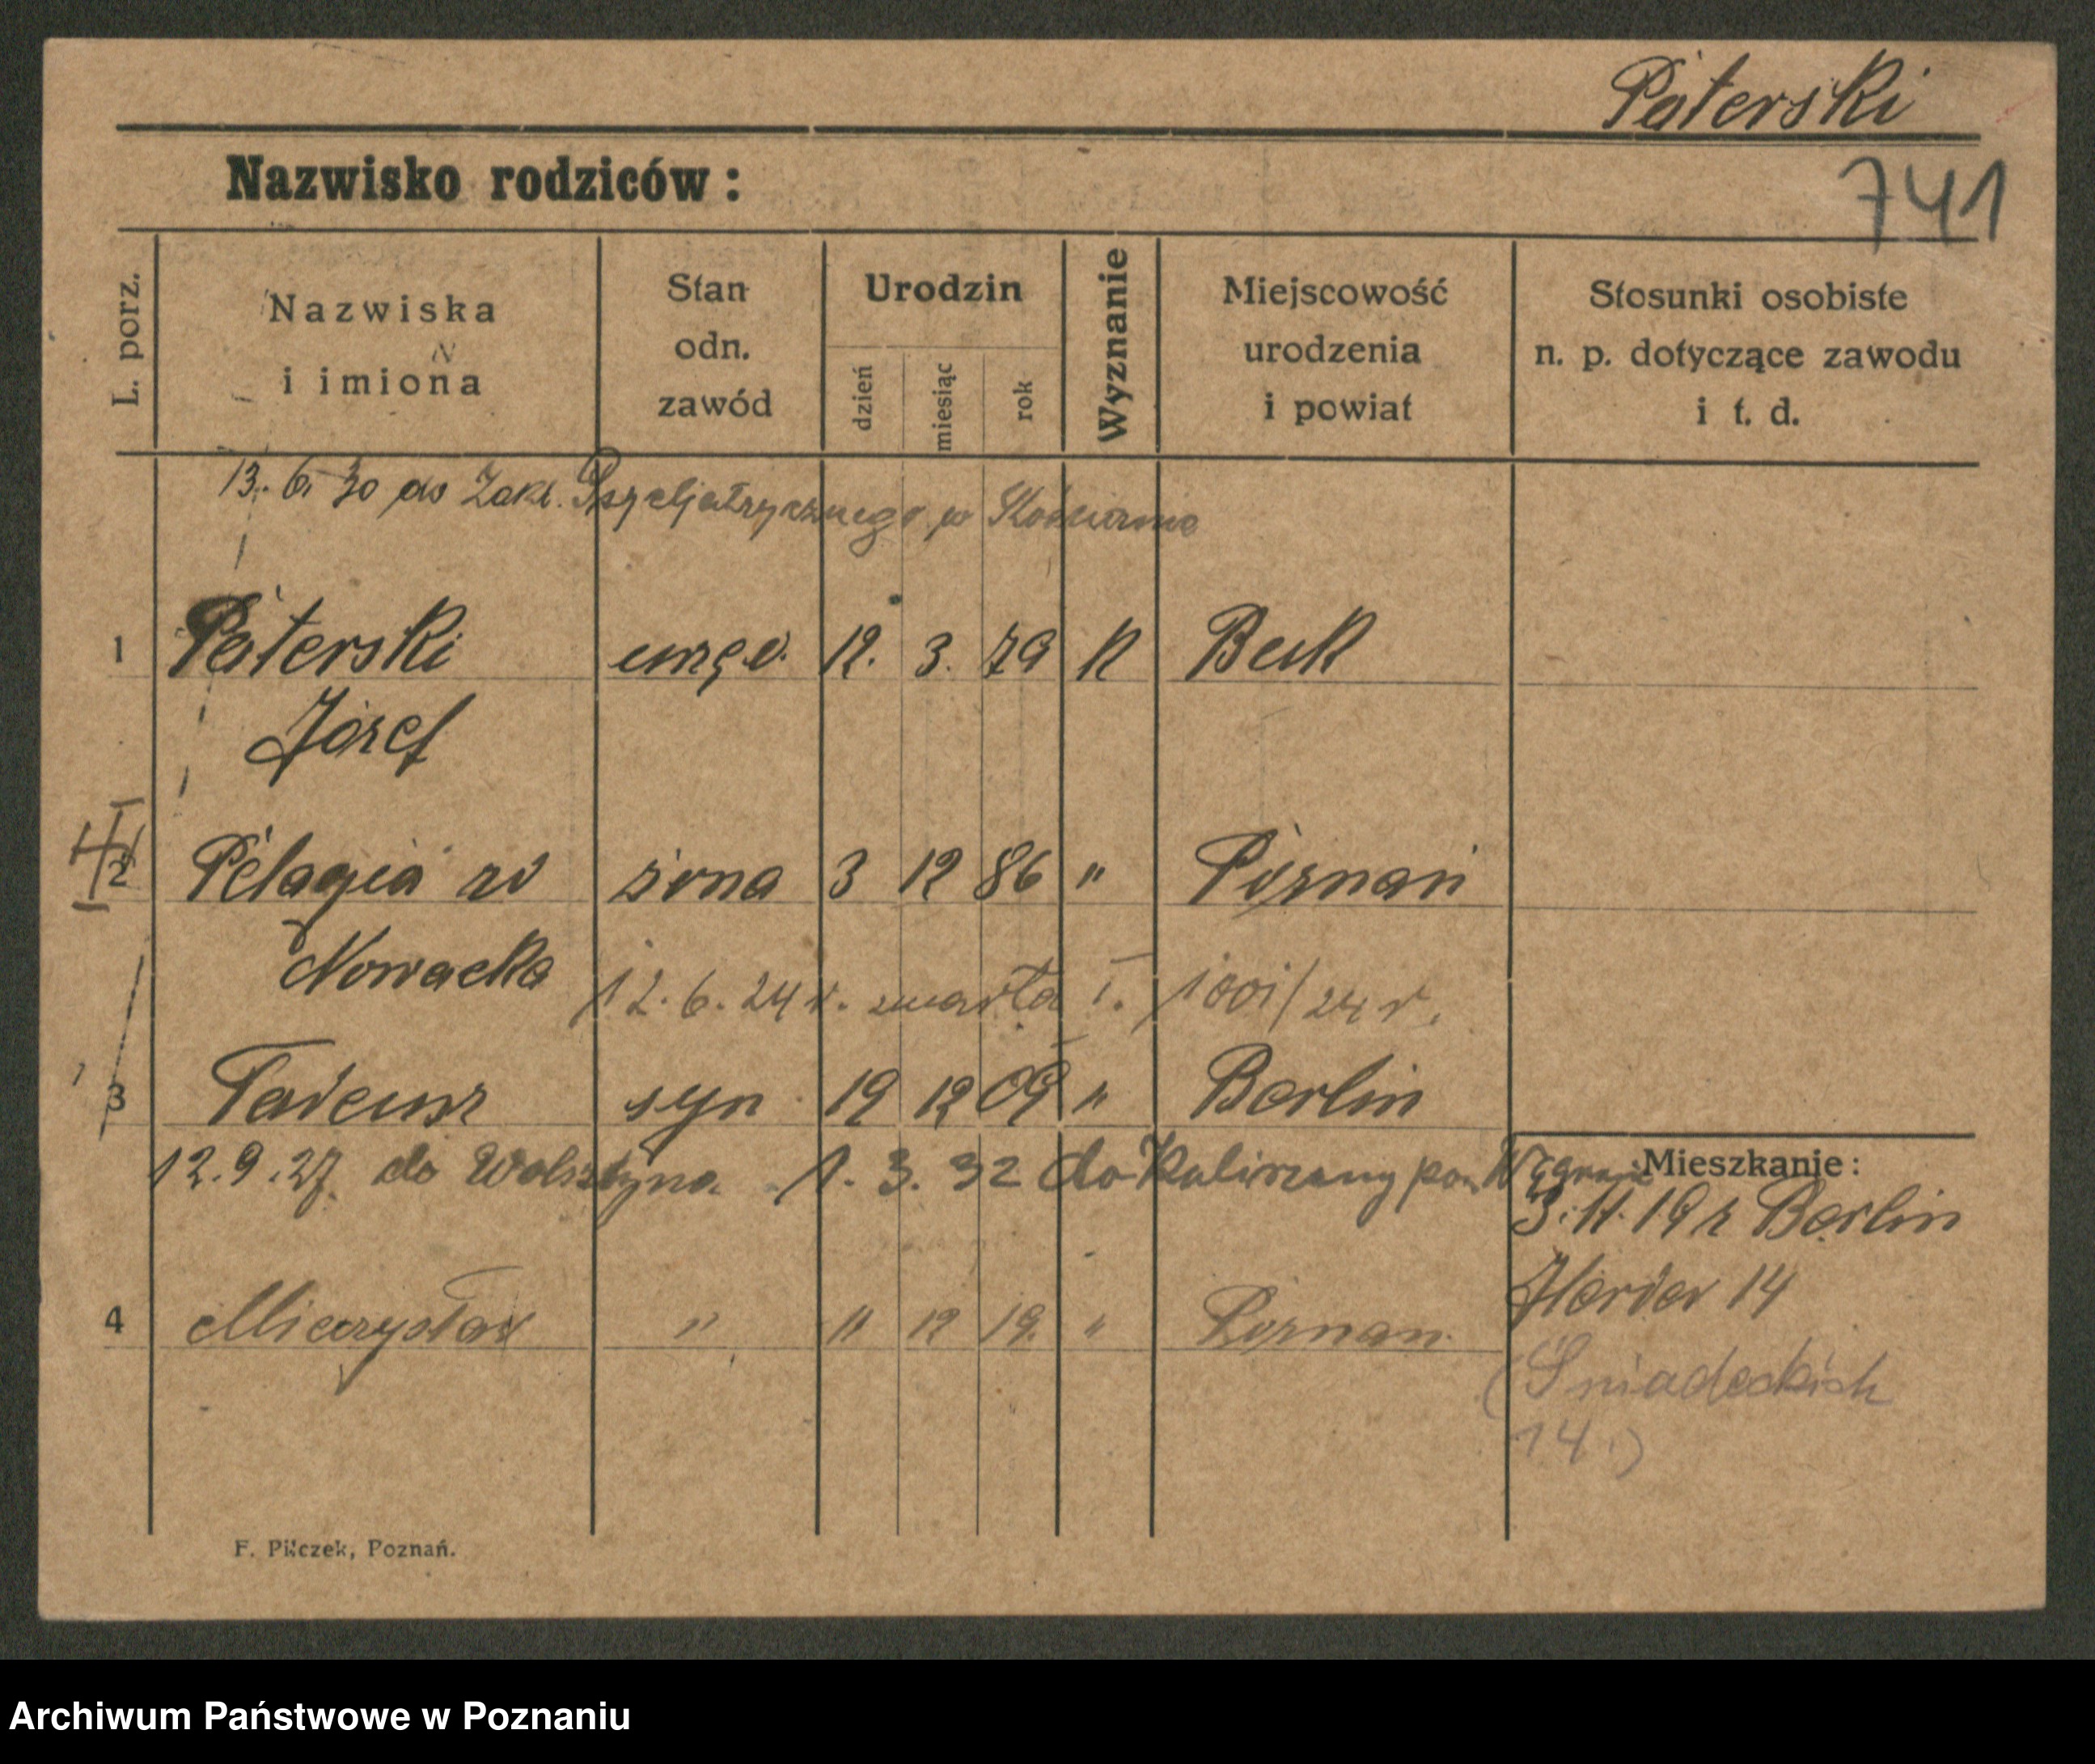 Paterski
741
Nazwisko rodziców:
L. porz.
Nazwiska i imiona
Stan odn. zawód
Urodzin
dzień
miesiąc
rok
Wyznanie
Miejscowość urodzenia i powiat
Stosunki osobiste n. p. dotyczące zawodu i t. d.
13. 6. 30 do Zakł. Psychjatrycznego w Kościanie
1 Paterski 12. 3. 79 K Buk
Józef
2 Pelagia żona 3 12 86 " Poznań
Nowacka
12. 6. 24 r. zmarła I. 1001/24 r.
3 Tadeusz syn 19 12 09 " Berlin
12.9.27. do Wolsztyna. 1. 3. 32 do Kaliszany pow.
Mieszkanie:
3. 11. 19 r Berlin
Herder 14
4 Mieczysław " 11 12 19. " Poznań.
(Śniadeckich
14.)
F. Pilczek, Poznań.
Archiwum Państwowe w Poznaniu